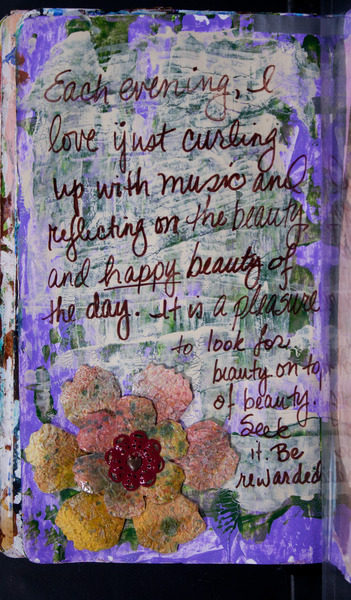 Each evening, I
love just curling
up with music and
reflecting on the beauty
and happy beauty of
the day. It is a pleasure
to look for
beauty on top
of beauty.
Seek
it. Be
rewarded